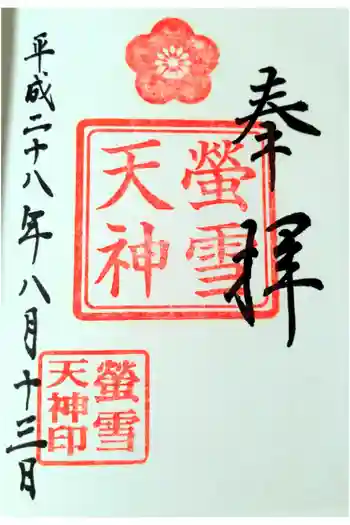 奉拝
螢雪
天神
螢雪
天神印
平成二十八年八月十三日